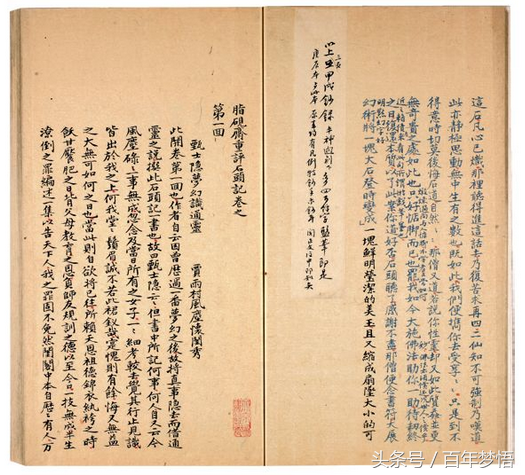 這石凡心已熾那裡聽得進這話去乃復苦求再四二仙知不可強制乃嘆道
此亦靜極思動無中生有之數也既如此我們便攜你去受享〻〻只是到不
得意時切莫後悔石道自然〻〻那僧又道若說你性靈却又如此質蠢並更
無奇貴之處如此也只好踮脚而已也罷我如今大施佛法助你一助待劫終
之日復還本質以了此案你道好否石頭聽了感謝不盡那僧便念咒書符大展
幻術將一塊大石登時變成一塊鮮明瑩潔的美玉且又縮成扇墜大小的可
以上 甲戌鈔錄
脂硯齋重評石頭記卷之
第一回
甄士隱夢幻識通靈 賈雨村風塵懷閨秀
此開卷第一回也作者自云因曾歷過一番夢幻之後故將真事隱去而借通
靈之說撰此石頭記一書也故曰甄士隱云〻但書中所記何事何人自又云今
風塵碌〻一事無成忽念及當日所有之女子一〻細考較去覺其行止見識
皆出於我之上何我堂〻鬚眉誠不若此裙釵哉實愧則有餘悔又無益
之大無可如何之日也當此則自欲將已往所賴天恩祖德錦衣紈袴之時
飫甘饜肥之日背父母教育之恩負師友規訓之德以至今日一技無成半生
潦倒之罪編述一集以告天下人我之罪固不免然閨閣中本自歷〻有人萬
头条号 / 百年梦悟